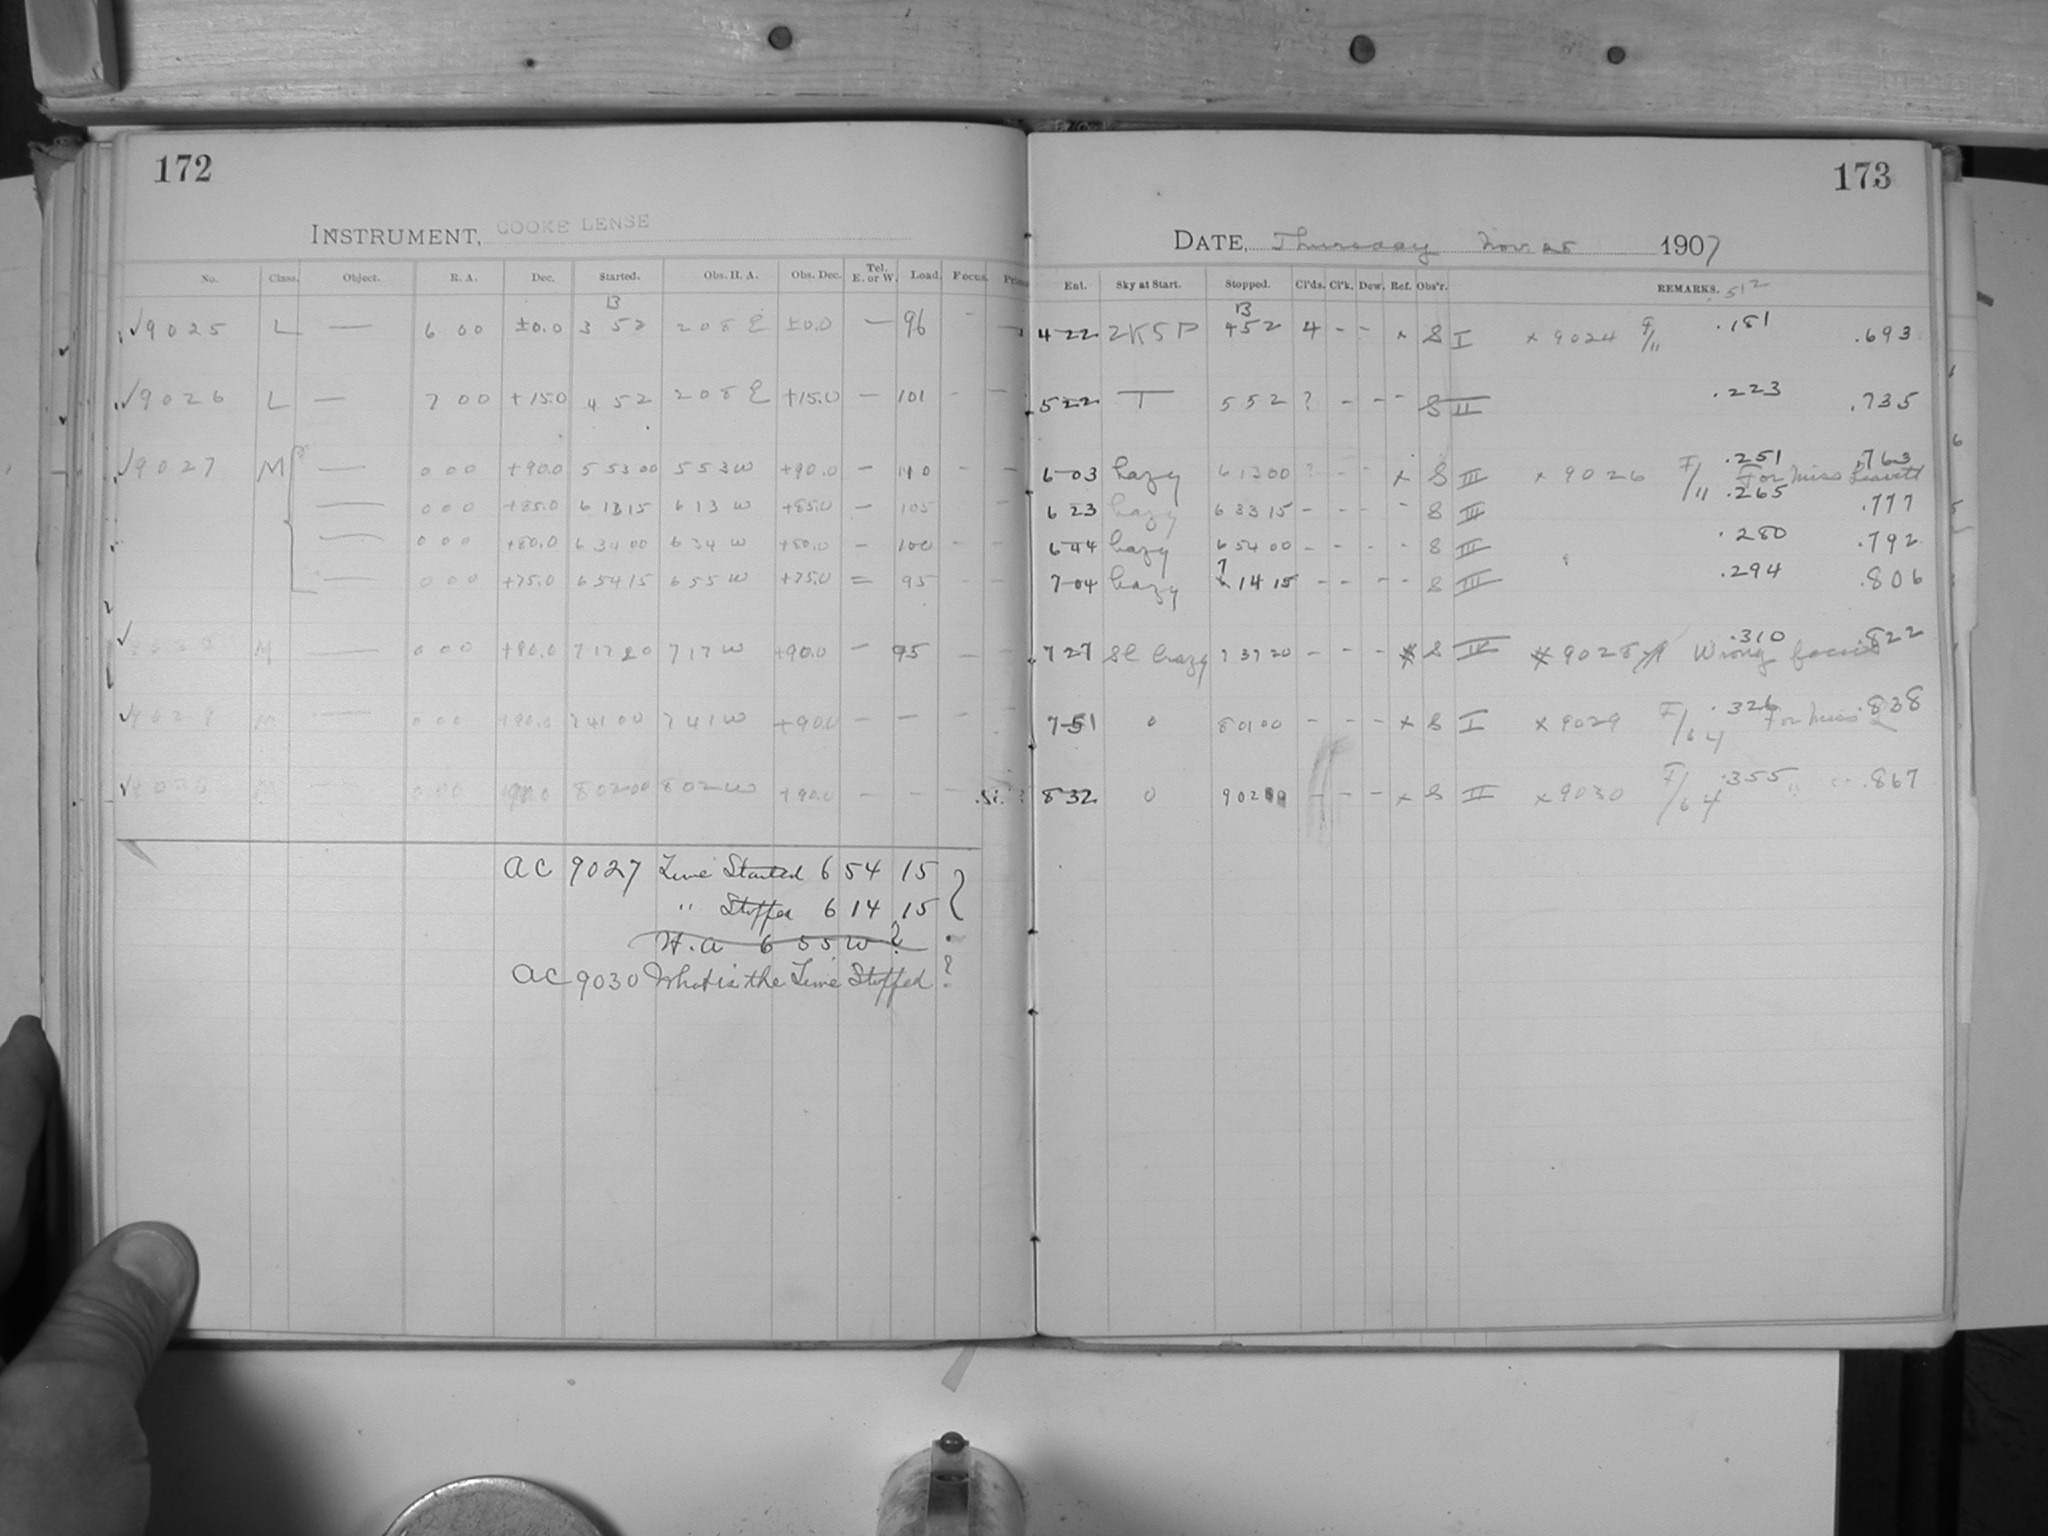 172
INSTRUMENT, COOKE LENSE
No. Class. Object. R. A. Dec. Started. Obs. H. A. Obs. Dec. Tel. E. or W. Load. Focus.
13
9025 L — 6 00 ±0.0 3 52 208 E ±0.0 — 96 -
9026 L — 7 00 +15.0 4 52 208 E +15.0 — 101 - -
9027 M — 0 00 +90.0 5 53 00 5 53 W +90.0 — 110 - -
— 0 00 +85.0 6 13 15 6 13 W +85.0 — 105 -
— 0 00 +80.0 6 34 00 6 34 W +80.0 — 100 - -
— 0 00 +75.0 6 54 15 6 55 W +75.0 = 95 - -
M — 0 00 +90.0 7 17 20 7 17 W +90.0 — 95 - -
9029 M — 0 00 +90.0 7 41 00 7 41 W +90.0 — — - -
9030 M — 0 00 +90.0 8 02 00 8 02 W +90.0 — - -
AC 9027 Time Started 6 54 15
" Stopped 6 14 15
H. A 6 55 W ?
AC 9030 What is the Time Stopped ?
173
DATE, Thursday Nov. 28 1907
Ent. Sky at Start. Stopped. Cl'ds. Cl'k. Dew. Ref. Obs'r. REMARKS. .512
13
4-22 2K5P 4 52 4 - - x S I x 9024 F/11 .181 .693
5-22 T 5 52 ? - - - S II .223 .735
6-03 hazy 6 13 00 ? - - x S III x 9026 F/11 .251 For Miss Leavitt .763
6 23 hazy 6 33 15 - - - - S III .265 .777
6-44 hazy 6 54 00 - - - - S III .280 .792
7-04 hazy 7 14 15 - - - - S III .294 .806
7 27 Sl hazy 7 37 20 - - - S IV 9028 .310 Wrong focus .822
7-51 0 8 01 00 - - - x S I x 9029 F/64 .326 For Miss L .838
8-32 0 - - - x S II x 9030 F/64 .355 " .867